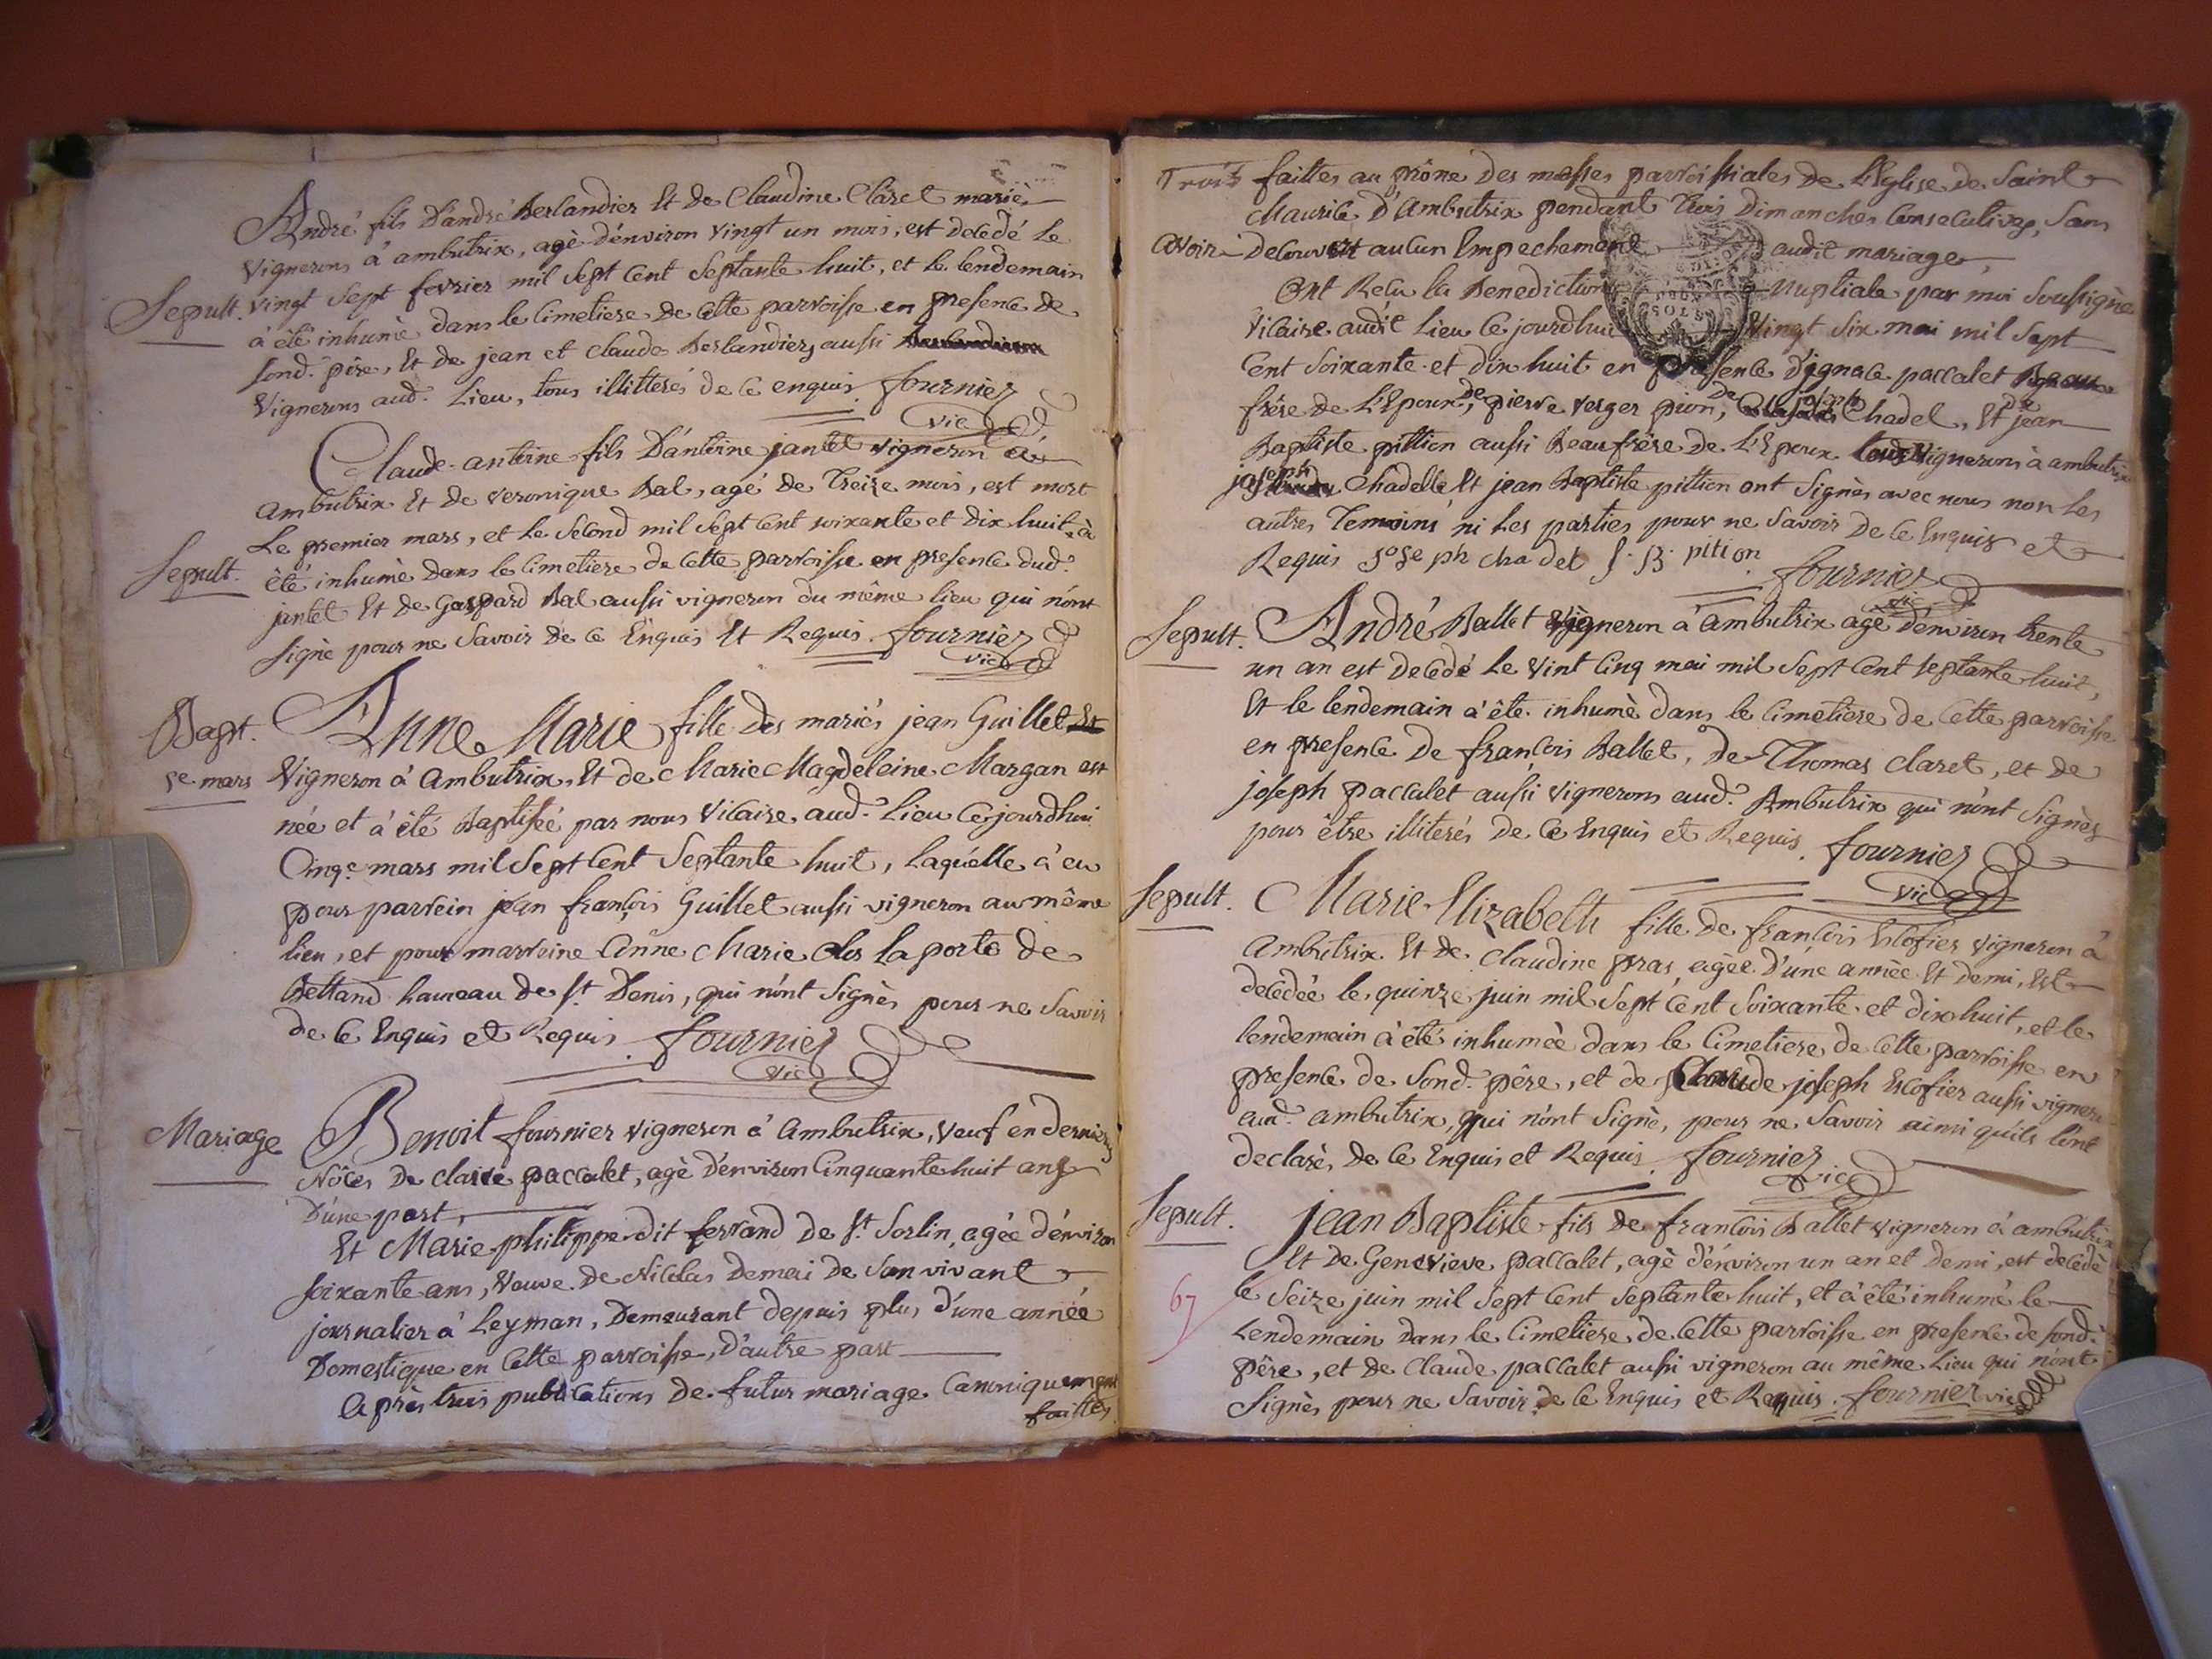 André fils D'andré Berlandier Et de Claudine Claret mariés
Vignerons à ambutrix, agè d'environ vingt un mois, est decedé le
Sepult. vingt sept fevrier mil sept cent septante huit, et le lendemain
à été inhumè dans le Cimetiere de cette parroisse en presence de
sond. père, Et de jean et claude Berlandier, aussi
Vignerons aud. Lieu, tous illitterés de ce enquis. fournier
vic
Claude-antoine fils D'antoine jantet vigneron à
ambutrix Et de veronique Bal, agé de Treize mois, est mort
Le premier mars, et le second mil sept cent soixante et dix huit à
Sepult. été inhumè dans le Cimetiere de cette parroisse en presence dud.
jantet Et de Gaspard Bal aussi vigneron du même lieu qui n'ont
signè pour ne savoir de ce Enquis Et Requis. fournier
vic
Bapt. Anne Marie fille des mariés jean Guillet Et
5e mars Vigneron à Ambutrix, Et de Marie Magdeleine Margan est
née et à été Baptisée par nous Vicaire aud. Lieu Cejourdhui
Cinq.e mars mil sept cent septante huit, Laquelle à eu
pour parrein jean françois Guillet aussi vigneron au même
lieu, et pour marreine Anne Marie de la porte de
Bettand hameau de St Denis, qui n'ont Signès pour ne savoir
de ce Enquis et Requis. fournier
vic
Mariage Benoit fournier vigneron à Ambutrix, veuf en derniers
Nôces De claire paccalet, agè d'environ Cinquante huit ans
D'une part,
Et Marie philippe dit ferrand de St Sorlin, agée d'environ
soixante ans, Veuve de Nicolas Demai de son vivant
journalier à Leyman, Demeurant depuis plus d'une année
Domestique en cette parroisse, D'autre part
Après trois publications de futur mariage Canoniquement
faittes
Trois faittes au prône des messes parroissiales de L'Eglise de Saint
Maurice D'Ambutrix pendant Trois Dimanches Consecutives, Sans
avoir Decouvert aucun Empechement audit mariage,
Ont Reçu la Benediction Nuptiale par moi Soussignè
Vicaire audit Lieu Cejourdhui Vingt six mai mil sept
Cent Soixante et dix huit en presence D'ignace paccalet Beau
frère de L'Epoux, de pierre verger pion, De joseph Chadel, Et de jean
Baptiste pittion aussi Beaufrère de L'Epoux tous vignerons à ambutrix
joseph Chadelle Et jean Baptiste pittion ont Signès avec nous non les
autres Temoins ni Les parties pour ne Savoir De ce Enquis et
Requis Joseph cha del J. B. pition. fournier
vic
Sepult. André Ballet vigneron à Ambutrix agé d'environ trente
un an est decedé Le vint cinq mai mil sept cent septante huit,
Et le lendemain à été inhumè dans le Cimetiere de cette parroisse
en presence De françois Ballet, de Thomas claret, et de
joseph paccalet aussi vignerons aud. Ambutrix qui n'ont Signès
pour être illiterés de ce Enquis et Requis. fournier
vic
Sepult. Marie Elizabeth fille de françois Escofier vigneron à
ambutrix Et de claudine pras, agèe D'une annèe Et demi, Est
decedée le quinze juin mil sept cent soixante et dix huit, et le
lendemain à été inhumèe dans le Cimetiere de cette parroisse en
presence de sond. père, et de Claude joseph Escofier aussi vigneron
aud. ambutrix, qui n'ont Signè, pour ne Savoir ainsi qu'ils l'ont
declarè, de ce Enquis et Requis. fournier
vic
Sepult. jean Baptiste fils de françois Ballet vigneron à ambutrix
Et de Genevieve paccalet, agè d'environ un an et Demi, est decedè
67 le seize juin mil sept cent septante huit, et à été inhumè le
Lendemain dans le Cimetiere de cette parroisse en presence de sond.
père, et de claude paccalet aussi vigneron au même Lieu qui n'ont
Signès pour ne Savoir de ce Enquis et Requis. fournier vic